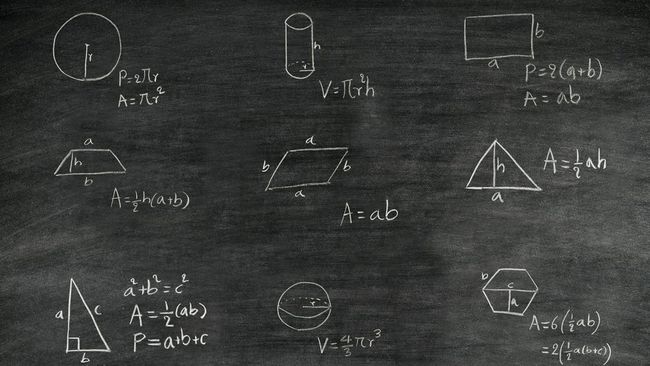 r
P=2πr
A=πr²
h
r
V=πr²h
b
a
P=2(a+b)
A=ab
a
h
b
A=½h(a+b)
a
b
b
a
A=ab
h
a
A=½ah
a
c
b
a²+b²=c²
A=½(ab)
P=a+b+c
r
V=4/3πr³
b
c
a
A=6(½ab)
=2(½a(b+c)